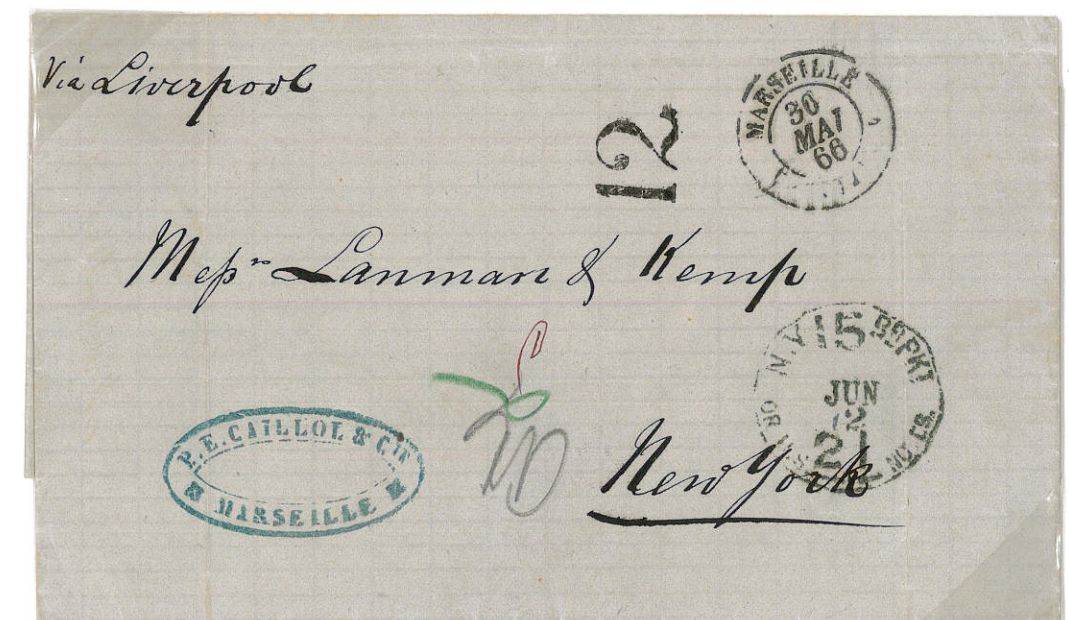 Via Liverpool
MARSEILLE
30
MAI
66
12
Mess^rs Lanman & Kemp
N.Y. 15 Br PKT
JUN
12
21
New York
P. E. CAILLOL & Cie
MARSEILLE